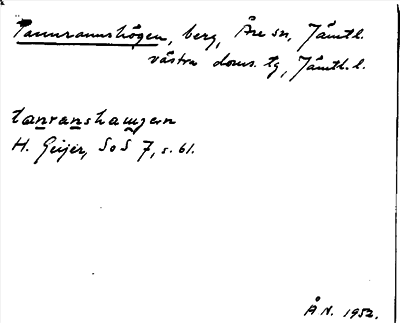 Tannranshögen, berg, Åre sn, Jämtl.
västra doms. tg, Jämtl. l.
tanranshaugen
H. Geijer, SoS 7, s. 61.
Å N. 1952.